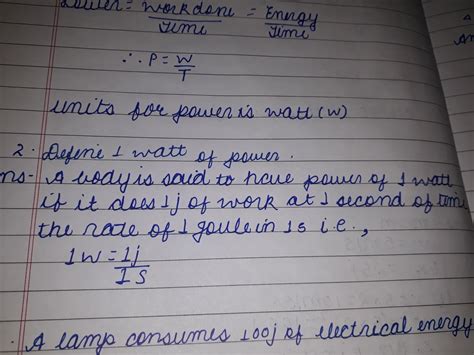 Power = Work done = Energy
Time Time
∴ P = W
T
units for power is watt (W)
2. Define 1 watt of power.
ns- A body is said to have power of 1 watt
if it does 1j of work at 1 second of time
the rate of 1 joule in 1s i.e.,
1W = 1j
1S
. A lamp consumes 100j of electrical energy